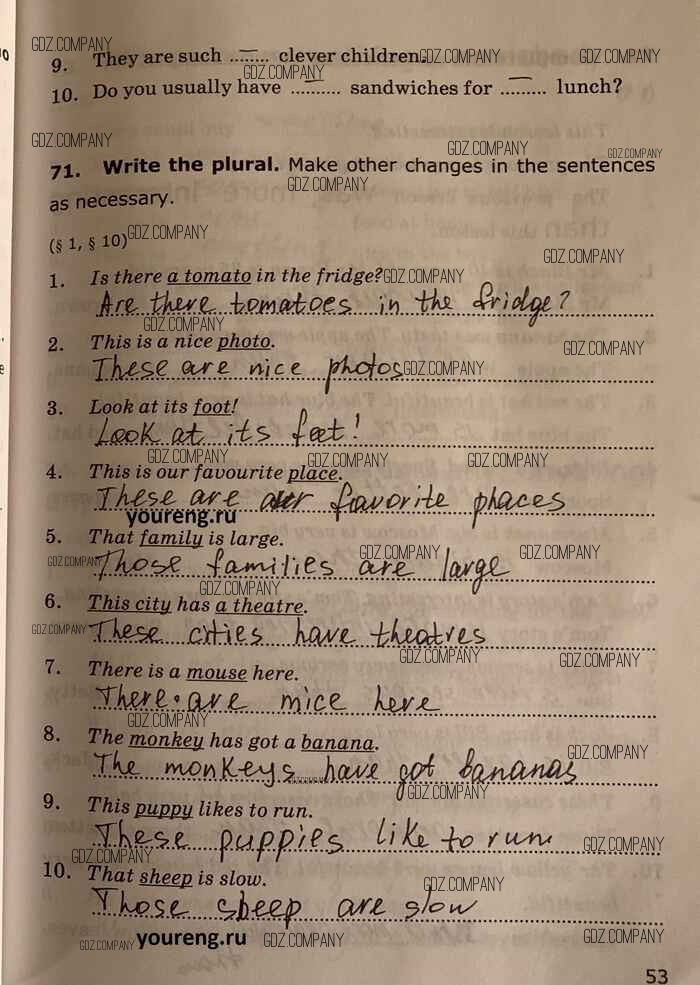 GDZ.COMPANY
9. They are such ........ clever children. GDZ.COMPANY GDZ.COMPANY
GDZ.COMPANY
10. Do you usually have .......... sandwiches for ......... lunch?
GDZ.COMPANY GDZ.COMPANY GDZ.COMPANY
71. Write the plural. Make other changes in the sentences
GDZ.COMPANY
as necessary.
(§ 1, § 10) GDZ.COMPANY
GDZ.COMPANY
1. Is there a tomato in the fridge? GDZ.COMPANY
Are there tomatoes in the fridge?
GDZ.COMPANY
2. This is a nice photo. GDZ.COMPANY
These are nice photos GDZ.COMPANY
3. Look at its foot!
Look at its feet!
GDZ.COMPANY GDZ.COMPANY GDZ.COMPANY
4. This is our favourite place.
These are our favorite phaces
youreng.ru
5. That family is large.
GDZ.COMPANY GDZ.COMPANY GDZ.COMPANY
Those families are large
GDZ.COMPANY
6. This city has a theatre.
GDZ.COMPANY These cities have theatres
GDZ.COMPANY GDZ.COMPANY
7. There is a mouse here.
There are mice here
GDZ.COMPANY
8. The monkey has got a banana.
GDZ.COMPANY
The monkeys have got bananas
GDZ.COMPANY GDZ.COMPANY
9. This puppy likes to run.
These puppies like to run
GDZ.COMPANY GDZ.COMPANY
10. That sheep is slow.
GDZ.COMPANY
Those sheep are slow
GDZ.COMPANY youreng.ru GDZ.COMPANY GDZ.COMPANY
53